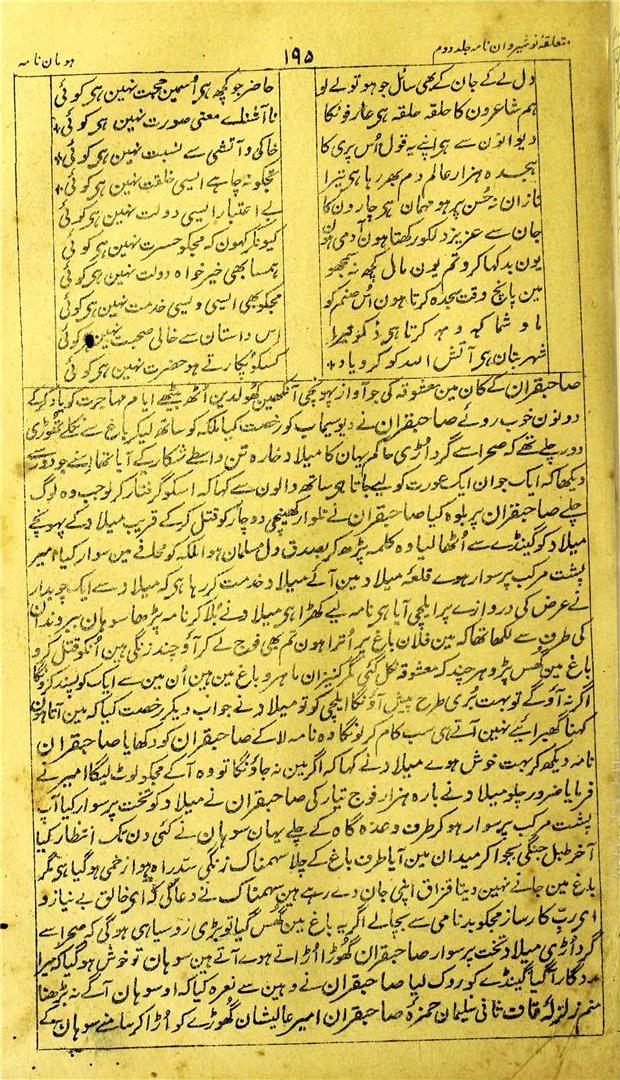 متعلقۂ نوشیروان نامہ جلد دوم
۱۹۵
ہومان نامہ
دل لے کے جان کے بھی سائل جو ہو تو لے لو
حاضر جو کچھ ہو اُسمین حجت نہین ہی کوئی
ہم شاعرون کا حلقہ حلقہ ہی عارفونکا
نا آشنائے معنی صورت نہین ہی کوئی
دیوانون سے ہی اپنے یہ قول اُس پری کا
خاکی و آتشی سے نسبت نہین ہی کوئی
ہجدہ ہزار عالم دم بھر رہا ہی تیرا
تجکو نہ چاہے ایسی خلقت نہین ہی کوئی
نازان نہ حُسن پر ہو مہمان ہی چار دن کا
بے اعتبار ایسی دولت نہین ہی کوئی
جان سے عزیز دلکو رکھتا ہون آدمی ہون
کیونکر کہون کہ مجکو حسرت نہین ہی کوئی
یون بد کہا کرو تم یون مال کچھ نہ سمجھو
ہمسا بھی خیر خواہ دولت نہین ہی کوئی
مین پانچ وقت سجدہ کرتا ہون اُس صنم کو
مجکو بھی ایسی ویسی خدمت نہین ہی کوئی
ما و شما کہ و مہ کرتا ہی ذکر تیرا
اس داستان سے خالی صحبت نہین ہی کوئی
شہر بتان ہی آتش اللہ کو کرو یاد
کسکو پکارتے ہو حضرت نہین ہی کوئی
صاحبقران کے کان مین معشوقہ کی جو آواز پہونچی آنکھین کھولدین اُٹھ بیٹھے ایام مہاجرت کو یاد کرکے
دونون خوب روئے صاحبقران نے دیو سیماب کو رخصت کیا ملکہ کو ساتھ لیکر باغ سے نکلے تھوڑی
دور چلے تھے کہ صحرا سے گرد اُڑی حاکم یہان کا میلاد خارہ تن واسطے شکار کے آیا تھا اسنے جو دور سے
دیکھا کہ ایک جوان ایک عورت کو لیے جاتا ہی ساتھ والون سے کہا کہ اسکو گرفتار کر لو جب وہ لوگ
چلے صاحبقران پر بلوہ کیا صاحبقران نے تلوار کھینچی دو چار کو قتل کرکے قریب میلاد کے پہونچے
میلاد کو گینڈے سے اُٹھا لیا وہ کلمہ پڑھ کر بصدق دل مسلمان ہوا ملکہ کو محافے مین سوار کیا امیر
پشت مرکب پر سوار ہوے قلعۂ میلاد مین آئے میلاد خدمت کر رہا ہی کہ میلاد سے ایک چوبدار
نے عرض کی دروازے پر ایلچی آیا ہی نامہ لیے کھڑا ہی میلاد نے بلا کر نامہ پڑھا سوہان
کی طرف سے لکھا تھا کہ مین فلان باغ پر اُترا ہون تم بھی فوج لے کر آؤ چند زنگی ہین اُنکو قتل کرو
باغ مین گھس پڑو ہر چند کہ معشوقہ نکل گئی مگر کنیزان ماہرو باغ مین ہین اُن مین سے ایک کو پسند کرونگا
اگر نہ آؤگے تو بہت بُری طرح پیش آؤنگا ایلچی کو تو میلاد نے جواب دیکر رخصت کیا کہ مین آتا ہون
کہنا گھبرائیے نہین آتے ہی سب کام کر لونگا وہ نامہ لا کے صاحبقران کو دکھایا صاحبقران
نامہ دیکھ کر بہت خوش ہوے میلاد نے کہا کہ اگر مین نہ جاؤنگا تو وہ آ کے مجکو لوٹ لیگا امیر نے
فرمایا ضرور چلو میلاد نے بارہ ہزار فوج تیار کی صاحبقران نے میلاد کو تخت پر سوار کیا آپ
پشت مرکب پر سوار ہو کر طرف وعدہ گاہ کے چلے یہان سوہان نے کئی دن تک انتظار کیا
آخر طبل جنگی بجوا کر میدان مین آیا طرف باغ کے چلا سہمناک زنگی سدّ راہ ہوا زخمی ہو گیا ہی مگر
باغ مین جانے نہین دیتا قزاق اپنی جان دے رہے ہین سہمناک نے دعا کی کہ ای خالق بے نیاز و
ای ربّ کارساز مجکو بدنامی سے بچالے اگر یہ باغ مین گھس گیا تو بڑی روسیاہی ہو گی کہ صحرا سے
گرد اُڑی میلاد تخت پر سوار صاحبقران گھوڑا اُڑاتے ہوے آتے ہین سوہان تو خوش ہو گیا کہ میرا
مددگار آگیا گینڈے کو روک لیا صاحبقران نے وہین سے نعرہ کیا کہ او سوہان آگے نہ بڑھنا
منم زلزلۂ قاف ثانی سلیمان حمزہ صاحبقران امیر عالیشان گھوڑے کو اُڑا کر سامنے سوہان کے